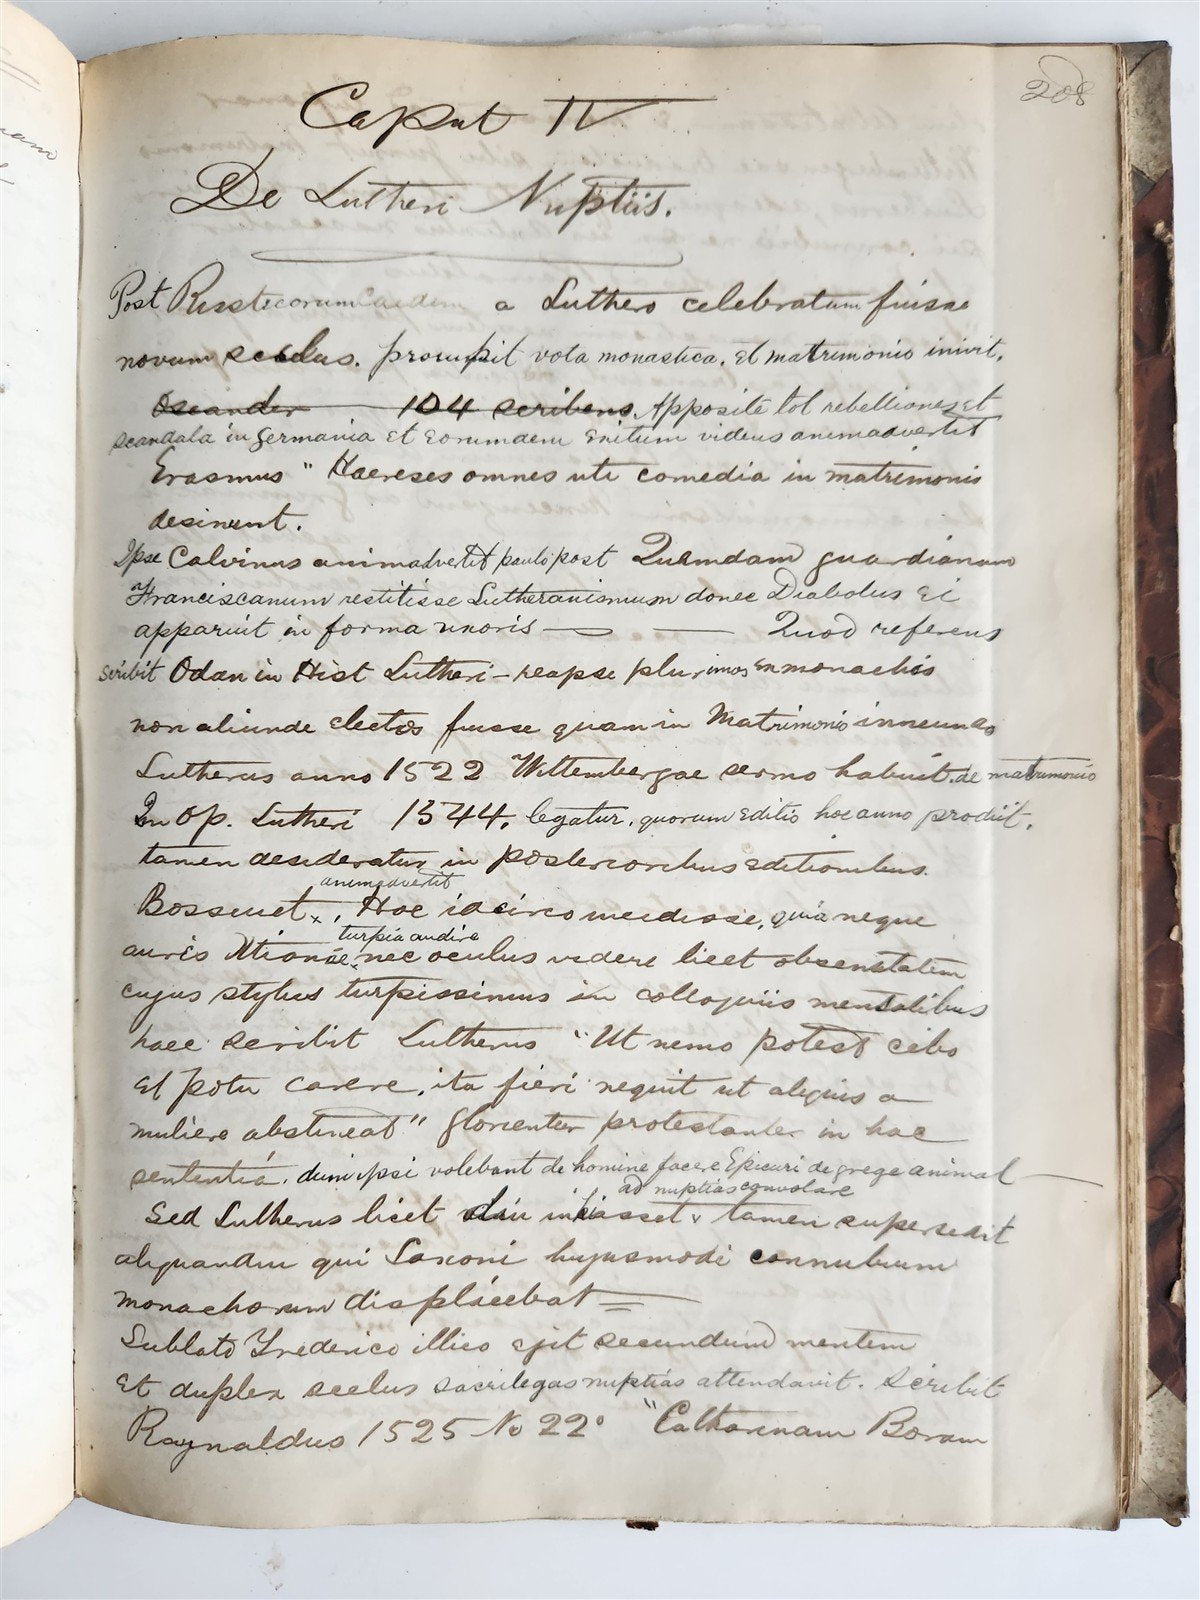 208
Caput IV
De Lutheri Nuptiis.
Post Rusticorum Caedem a Luthero celebratum fuisse
novum scelus. prorupit vota monastica. et matrimonio inivit.
Oseander 104 scribens Apposite tot rebelliones et
scandala in germania et eorumdem exitum videns animadvertit
Erasmus " Haereses omnes uti comedia in matrimonio
desinunt.
Ipse Calvinus animadvertit paulo post Quemdam guardianum
Franciscanum restitisse Lutheranismum donec Diabolus ei
apparuit in forma uxoris — — Quod referens
scribit Odan in Hist Lutheri - reapse plurimos ex monachis
non aliunde electos fuisse quam in Matrimonio ineundo
Lutherus anno 1522 Wittembergae sermo habuit. de matrimonio
In Op. Lutheri 1544. legatur. quorum editio hoc anno prodiit.
tamen desideratur in posterioribus editionibus.
animadvertit
Bossuet x. Hoc idcirco incidisse, quia neque
turpia audire
auris nec oculus videre licet obsenitatem
cujus stylus turpissimus in colloquiis mensalibus
haec scribit Lutherus "Ut nemo potest cibo
et potu carere, ita fieri nequit ut aliquis a
muliere abstineat" glorientur protestantes in hac
sententiá. dum ipsi volebant de homine facere Epicuri de grege animal —
ad nuptias convolare
Sed Lutherus licet diu tamen supersedit
aliquandiu qui Saxoni hujusmodi connubium
monachorum displicebat —
Sublato Frederico illico egit secundum mentem
et duplex scelus sacrilegas nuptias attendavit. Scribit
Raynaldus 1525 No 22° "Catharinam Boram